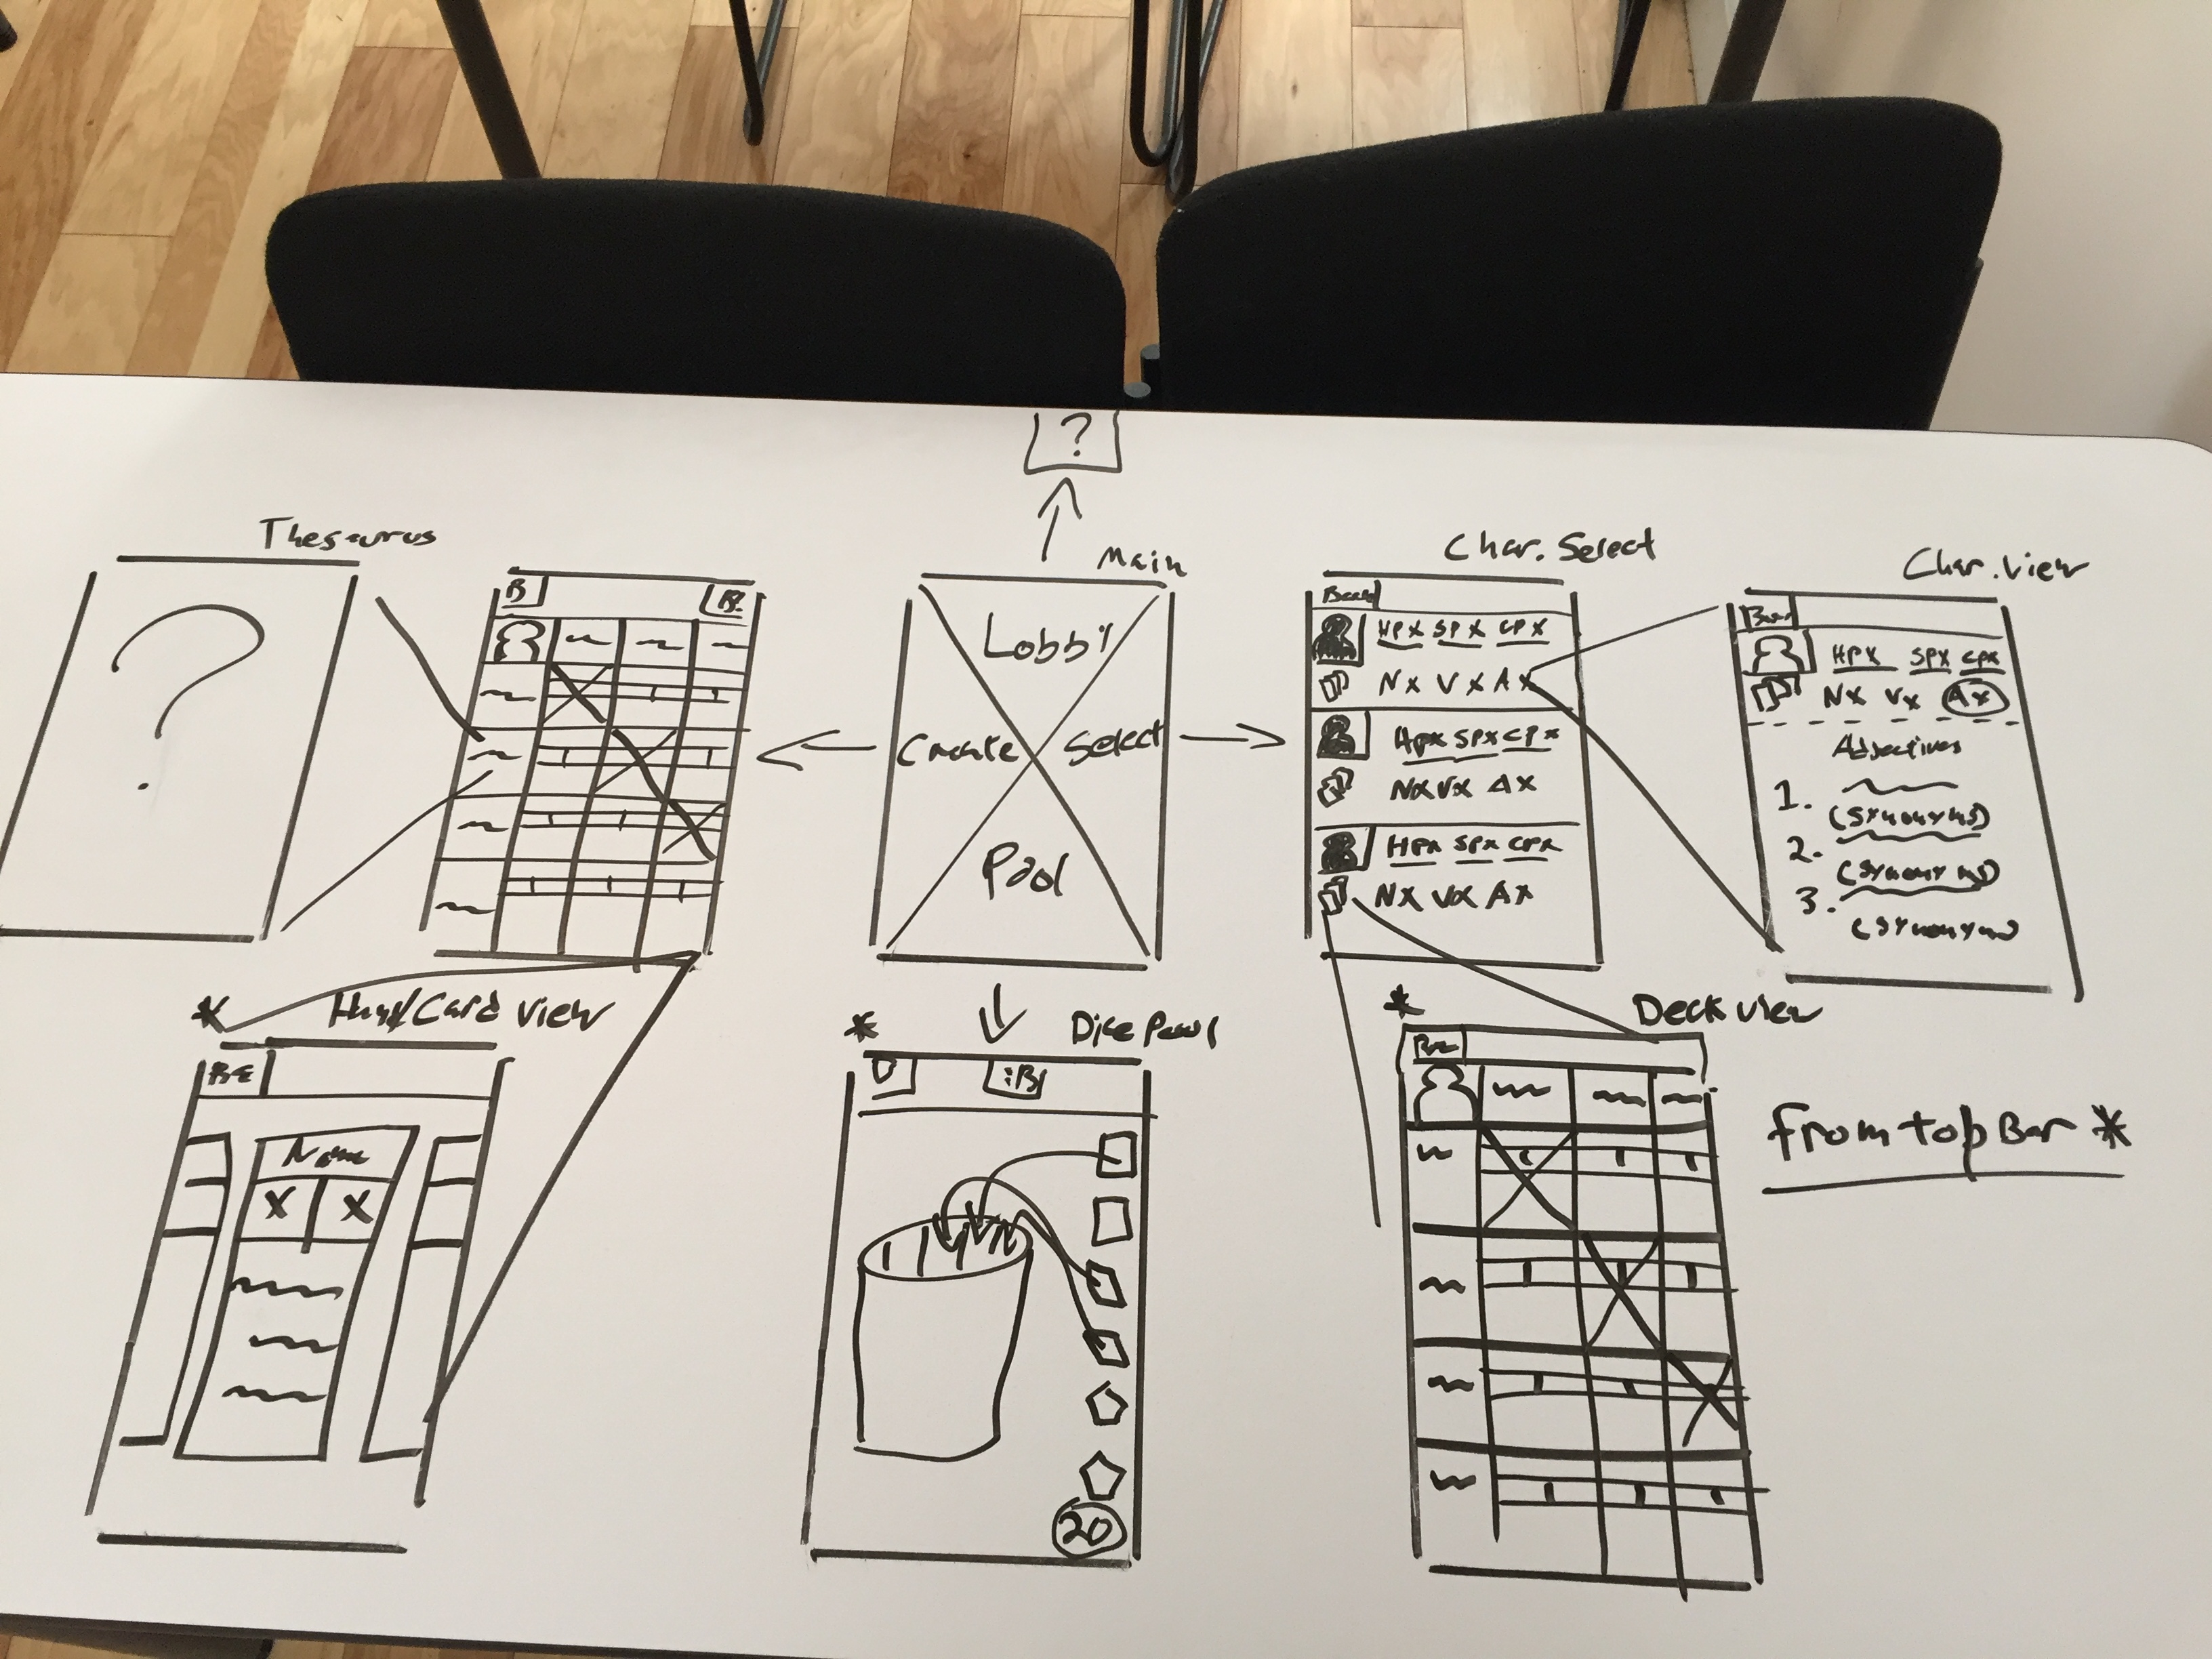 ?
Thesaurus
?
B
Main
Lobby
Create
Select
Pool
Char. Select
Back
HPX SPX CPX
NX VX AX
HPX SPX CPX
NX VX AX
HPX SPX CPX
NX VX AX
Char. View
HPX SPX CPX
NX VX AX
Adjectives
1.
(synonyms)
2.
(synonyms)
3.
(synonyms)
* Card View
Name
X X
* Dice Pool
20
* Deck View
From top Bar *